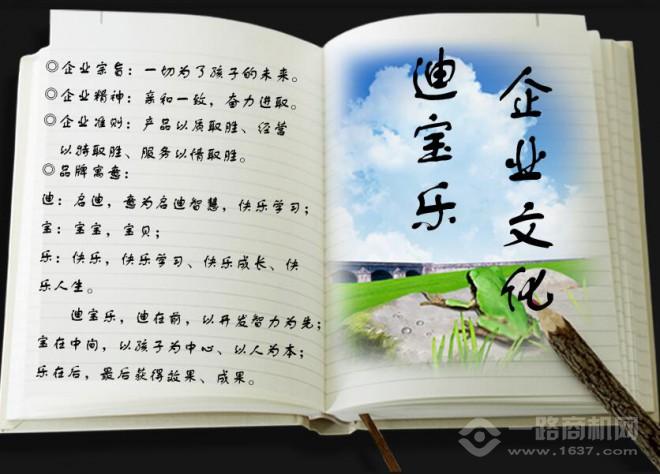 ◎企业宗旨：一切为了孩子的未来。
◎企业精神：亲和一致，奋力进取。
◎企业准则：产品以质取胜、经营
以特取胜、服务以情取胜。
◎品牌寓意：
迪：启迪，意为启迪智慧，快乐学习；
宝：宝宝，宝贝；
乐：快乐，快乐学习、快乐成长、快
乐人生。
迪宝乐，迪在前，以开发智力为先；
宝在中间，以孩子为中心、以人为本；
乐在后，最后获得效果、成果。
企业文化
迪宝乐
一路商机网
www.1637.com